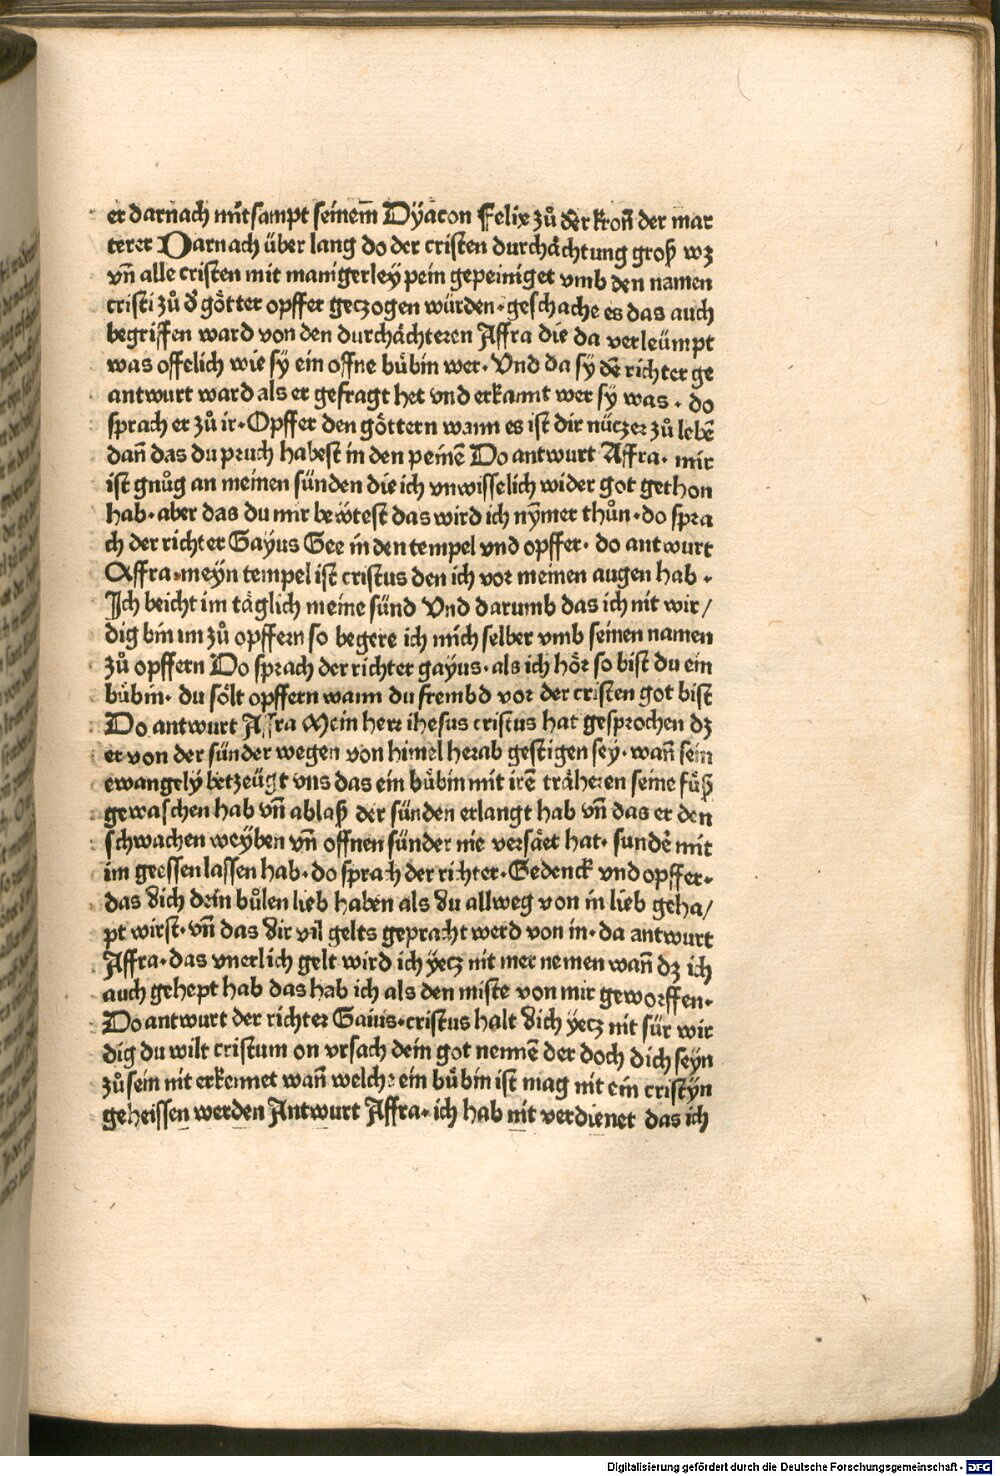 er darnach mitsampt seinem̃ Dÿacon Felix zů der kron̄ der mar
terer Darnach über lang do der cristen durchåchtung groß wz
vn̄ alle cristen mit manigerleÿ pein gepeiniget vmb den namen
cristi zů d̕ götter opffer geczogen würden·geschache es das auch
begriffen ward von den durchåchteren Affra die da verleümpt
was offelich wie sÿ ein offne bübin wer· Vnd da sÿ dē richter ge
antwurt ward als er gefragt het vnd erkannt wer sÿ was· do
sprach er zů ir·Opffer den göttern wann es ist dir nüczer zů lebē
dan̄ das du pruch habest in den peinē Do antwurt Affra· mir
ist gnůg an meinen sünden die ich vnwisselich wider got gethon
hab·aber das du mir bewtest das wird ich nÿmer thůn·do spra
ch der richter Gaÿus Gee in den tempel vnd opffer· do antwurt
Affra·meÿn tempel ist cristus den ich vor meinen augen hab·
Ich beicht im täglich meine sünd Vnd darumb das ich nit wir/
dig bin im zů opffern so begere ich mich selber vmb seinen namen
zů opffern Do sprach der richter gaÿus·als ich hör so bist du ein
bübin· du sölt opffern wann du frembd vor der cristen got bist
Do antwurt Affra Mein herr ihesus cristus hat gesprochen dz
er von der sünder wegen von himel herab gestigen seÿ·wan̄ sein
ewangelÿ betzeügt vns das ein bübin mit irē träheren seine füß
gewaschen hab vn̄ ablaß der sünden erlangt hab vn̄ das er den
schwachen weÿben vn̄ offnen sünder nie versäet hat· sundē mit
im geessen lassen hab·do sprach der richter·Gedenck vnd opffer·
das dich dein bůlen lieb haben als du allweg von in lieb geha/
pt wirst·vn̄ das dir vil gelts gepracht werd von in·da antwurt
Affra·das vnerlich gelt wird ich ÿecz nit mer nemen wan̄ dz ich
auch gehept hab das hab ich als den miste von mir geworffen·
Do antwurt der richter Gaius·cristus halt dich ÿecz nit für wir
dig du wilt cristum on vrsach dein got nennē der doch dich seÿn
zů sein nit erkennet wan̄ welche ein bübin ist mag nit ein cristÿn
geheissen werden Antwurt Affra·ich hab nit verdienet das ich
Digitalisierung gefördert durch die Deutsche Forschungsgemeinschaft - DFG